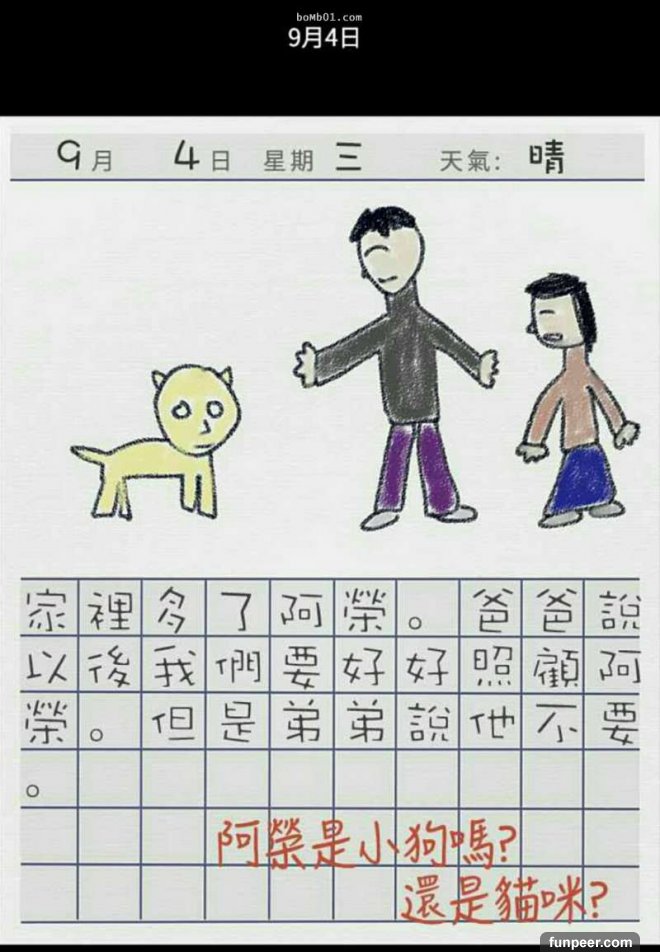 boMbO1.com
9月4日
9月 4日 星期 三 天氣: 晴
家裡多了阿榮。爸爸說
以後我們要好好照顧阿
榮。但是弟弟說他不要
。
阿榮是小狗嗎?
還是貓咪?
funpeer.com